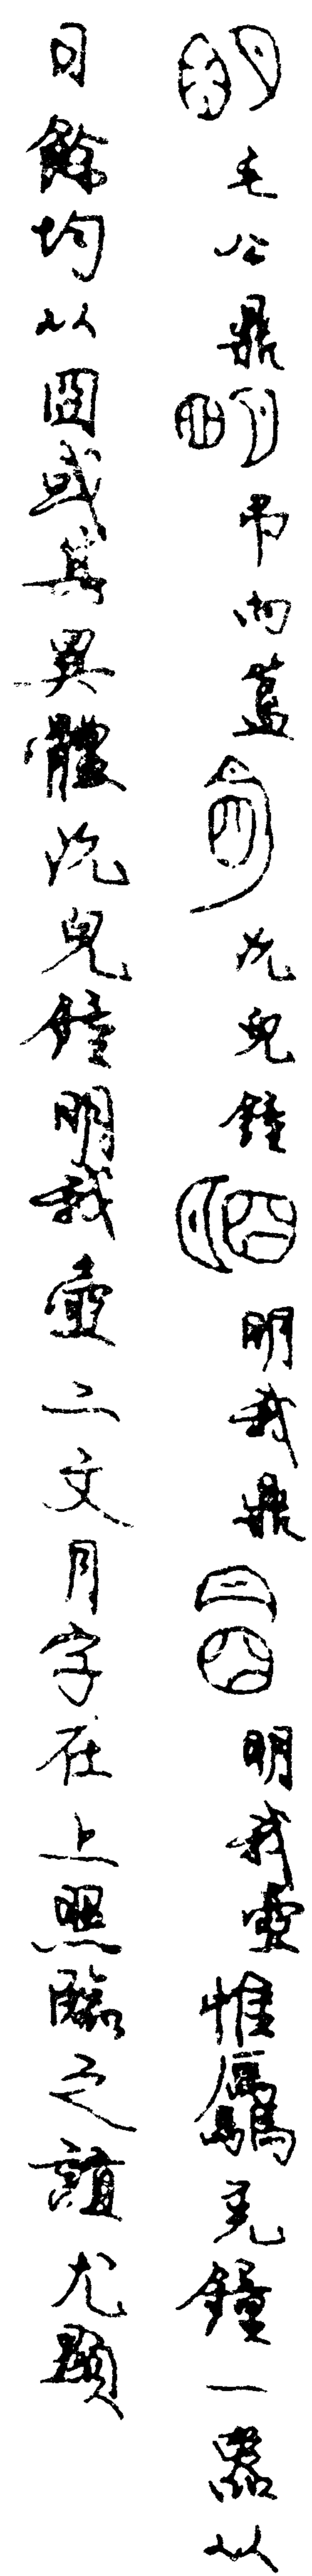 毛公鼎 弔向簋 沇兒鐘 明我鼎 明我壺惟驫羌鐘一器从
日餘均从囧或其異體沇兒鐘明我壺二文月字在上照臨之誼尤顯